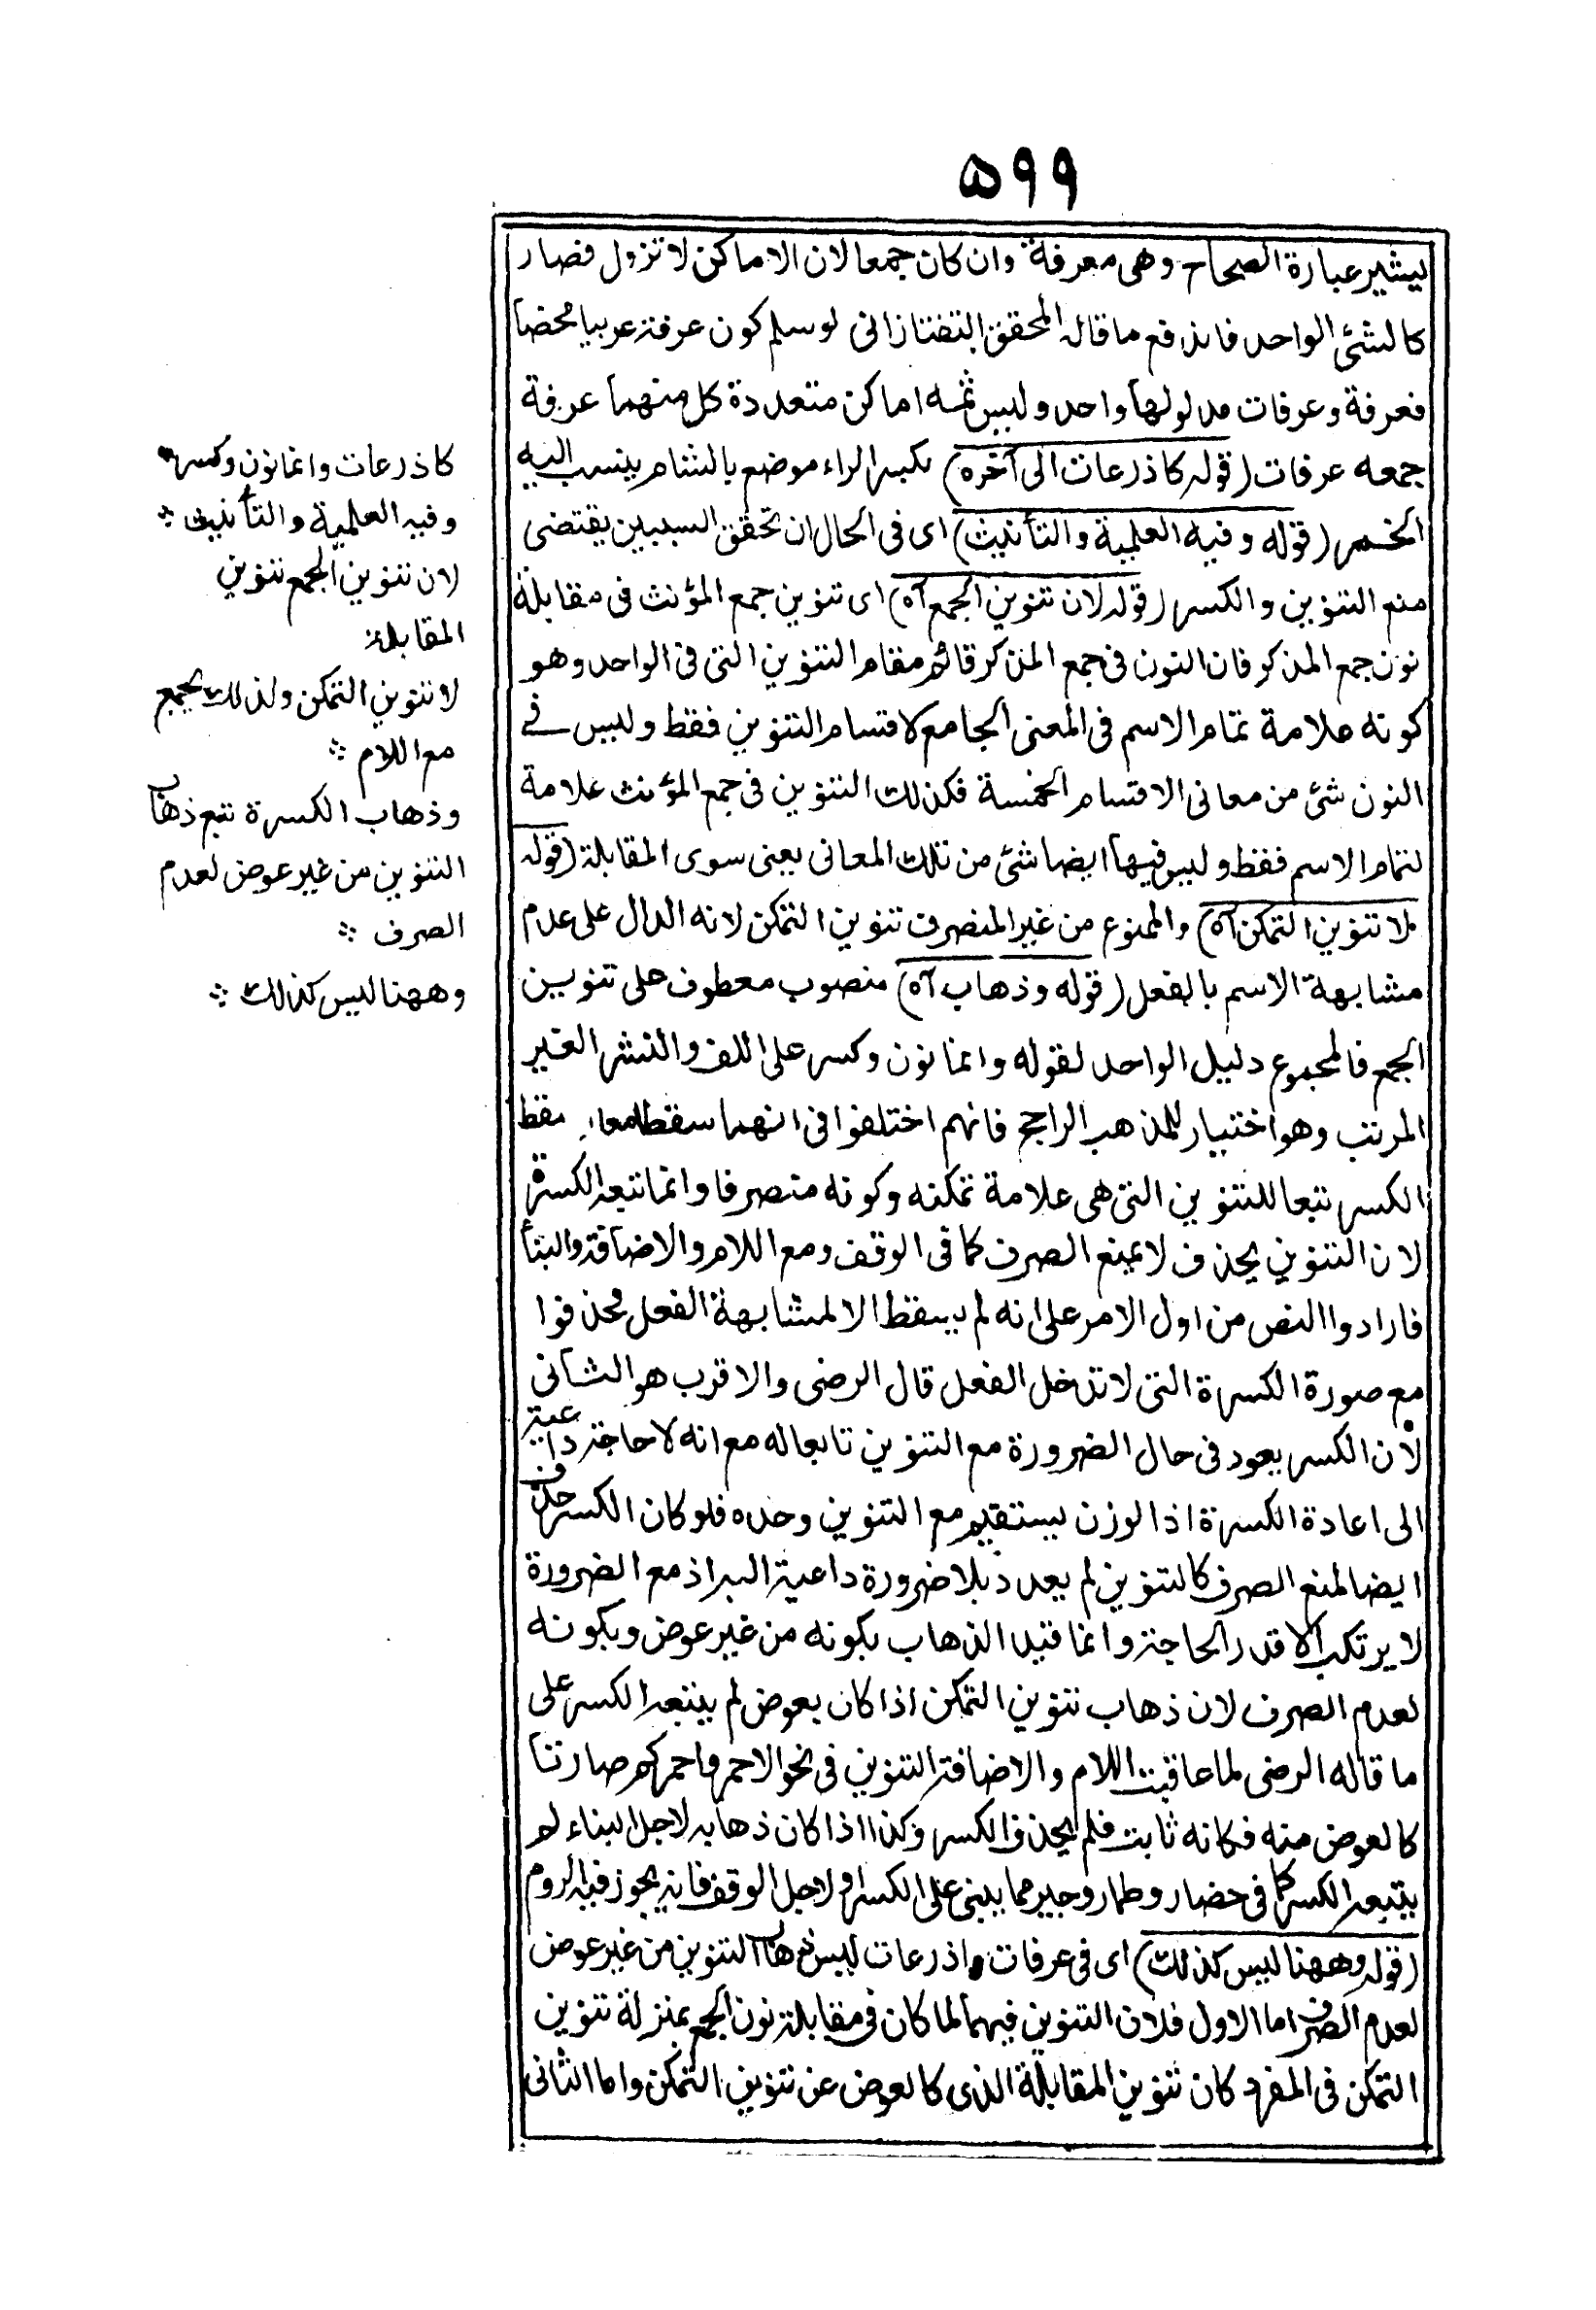 ۵۹۹
يشير عبارة الصحاح وهى معرفة وان كان جمعا لان الاماكن لا تزول فصار
كالشئ الواحد فاندفع ما قاله المحقق التفتازانى لو سلم كون عرفة عربيا محضا
فعرفة وعرفات مدلولها واحد وليس ثمه اماكن متعددة كل منهما عرفة
جمعه عرفات (قوله كاذرعات الى آخره) بكسر الراء موضع بالشام ينسب اليه
الخمر (قوله وفيه العلمية والتأنيث) اى فى الحال ان تحقق السببين يقتضى
منع التنوين والكسر (قوله لان تنوين الجمع آه) اى تنوين جمع المؤنث فى مقابلة
نون جمع المذكر فان النون فى جمع المذكر قائم مقام التنوين التى فى الواحد وهو
كونه علامة تمام الاسم فى المعنى الجامع لاقسام التنوين فقط وليس فے
النون شئ من معانى الاقسام الخمسة فكذلك التنوين فى جمع المؤنث علامة
لتمام الاسم فقط وليس فيها ايضا شئ من تلك المعانى يعنى سوى المقابلة (قوله
لا تنوين التمكن آه) والممنوع من غير المنصرف تنوين التمكن لانه الدال على عدم
مشابهة الاسم بالفعل (قوله وذهاب آه) منصوب معطوف على تنوين
الجمع فالمجموع دليل الواحد لقوله وانما نون وكسر على اللف والنشر الغير
المرتب وهو اختيار للمذهب الراجح فانهم اختلفوا فى انهما سقطا معا
الكسر تبعا للتنوين التى هى علامة تمكنه وكونه منصرفا وانما تتبعه الكسرة
لان التنوين يحذف لا بمنع الصرف كما فى الوقف ومع اللام والاضافة والبنأ
فارادوا النص من اول الامر على انه لم يسقط الا لمشابهة الفعل فحذفوا
مع صورة الكسرة التى لا تدخل الفعل قال الرضى والاقرب هو الثانى
لان الكسر يعود فى حال الضرورة مع التنوين تابعا له مع انه لا حاجة داعية
الى اعادة الكسرة اذ الوزن يستقيم مع التنوين وحده فلو كان الكسر حذف
ايضا لمنع الصرف كالتنوين لم يعد بلا ضرورة داعية اليه اذ مع الضرورة
لا يرتكب الا قدر الحاجة وانما قيد الذهاب بكونه من غير عوض وبكونه
لعدم الصرف لان ذهاب تنوين التمكن اذا كان بعوض لم يتبعه الكسر على
ما قاله الرضى لما عاقبت اللام والاضافة التنوين فى نحو الاحمر واحمركم صارتا
كالعوض منه فكانه ثابت فلم يحذف الكسر وكذا اذا كان ذهابه لاجل البناء لم
يتبعه الكسر كما فى حضار وطمار وجير مما يبنى على الكسر او لاجل الوقف فانه يجوز فيه الروم
(قوله وههنا ليس كذلك) اى فى عرفات واذرعات ليس ذهاب التنوين من غير عوض
لعدم الصرف اما الاول فلان التنوين فيهما لما كان فى مقابلة نون الجمع بمنزلة تنوين
التمكن فى المفرد كان تنوين المقابلة الذى كالعوض عن تنوين التمكن واما الثانى
كاذرعات وانما نون وكسر
وفيه العلمية والتأنيث
لان تنوين الجمع تنوين
المقابلة
لا تنوين التمكن ولذلك يجمع
مع اللام
وذهاب الكسرة تتبع ذهاب
التنوين من غير عوض لعدم
الصرف
وههنا ليس كذلك